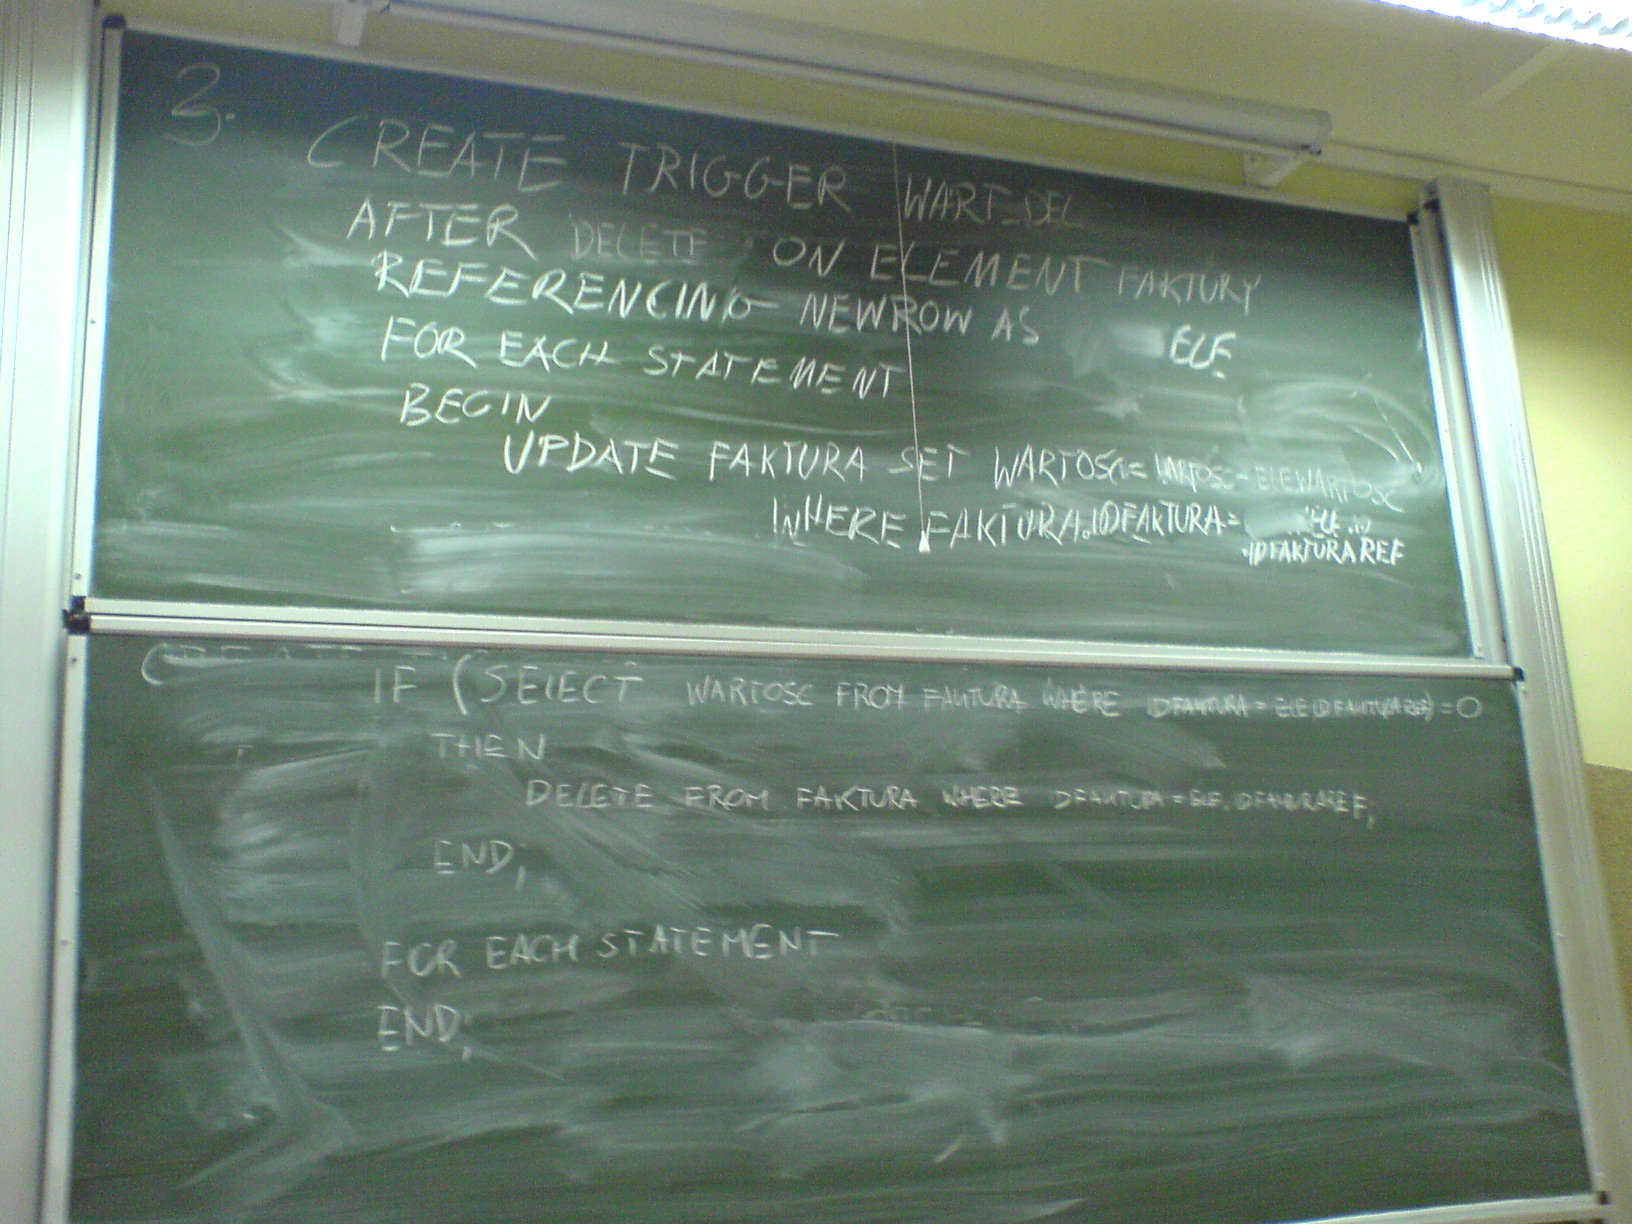 3.
CREATE TRIGGER WART_DEL
AFTER DELETE ON ELEMENT FAKTURY
REFERENCING NEWROW AS ELE
FOR EACH STATEMENT
BEGIN
UPDATE FAKTURA SET WARTOSC = WARTOSC - ELE.WARTOSC
WHERE FAKTURA.IDFAKTURA = ELE
.IDFAKTURAREF
IF (SELECT WARTOSC FROM FAKTURA WHERE IDFAKTURA = ELE.IDFAKTURAREF) = 0
THEN
DELETE FROM FAKTURA WHERE IDFAKTURA = ELE.IDFAKTURAREF;
END;
FOR EACH STATEMENT
END;